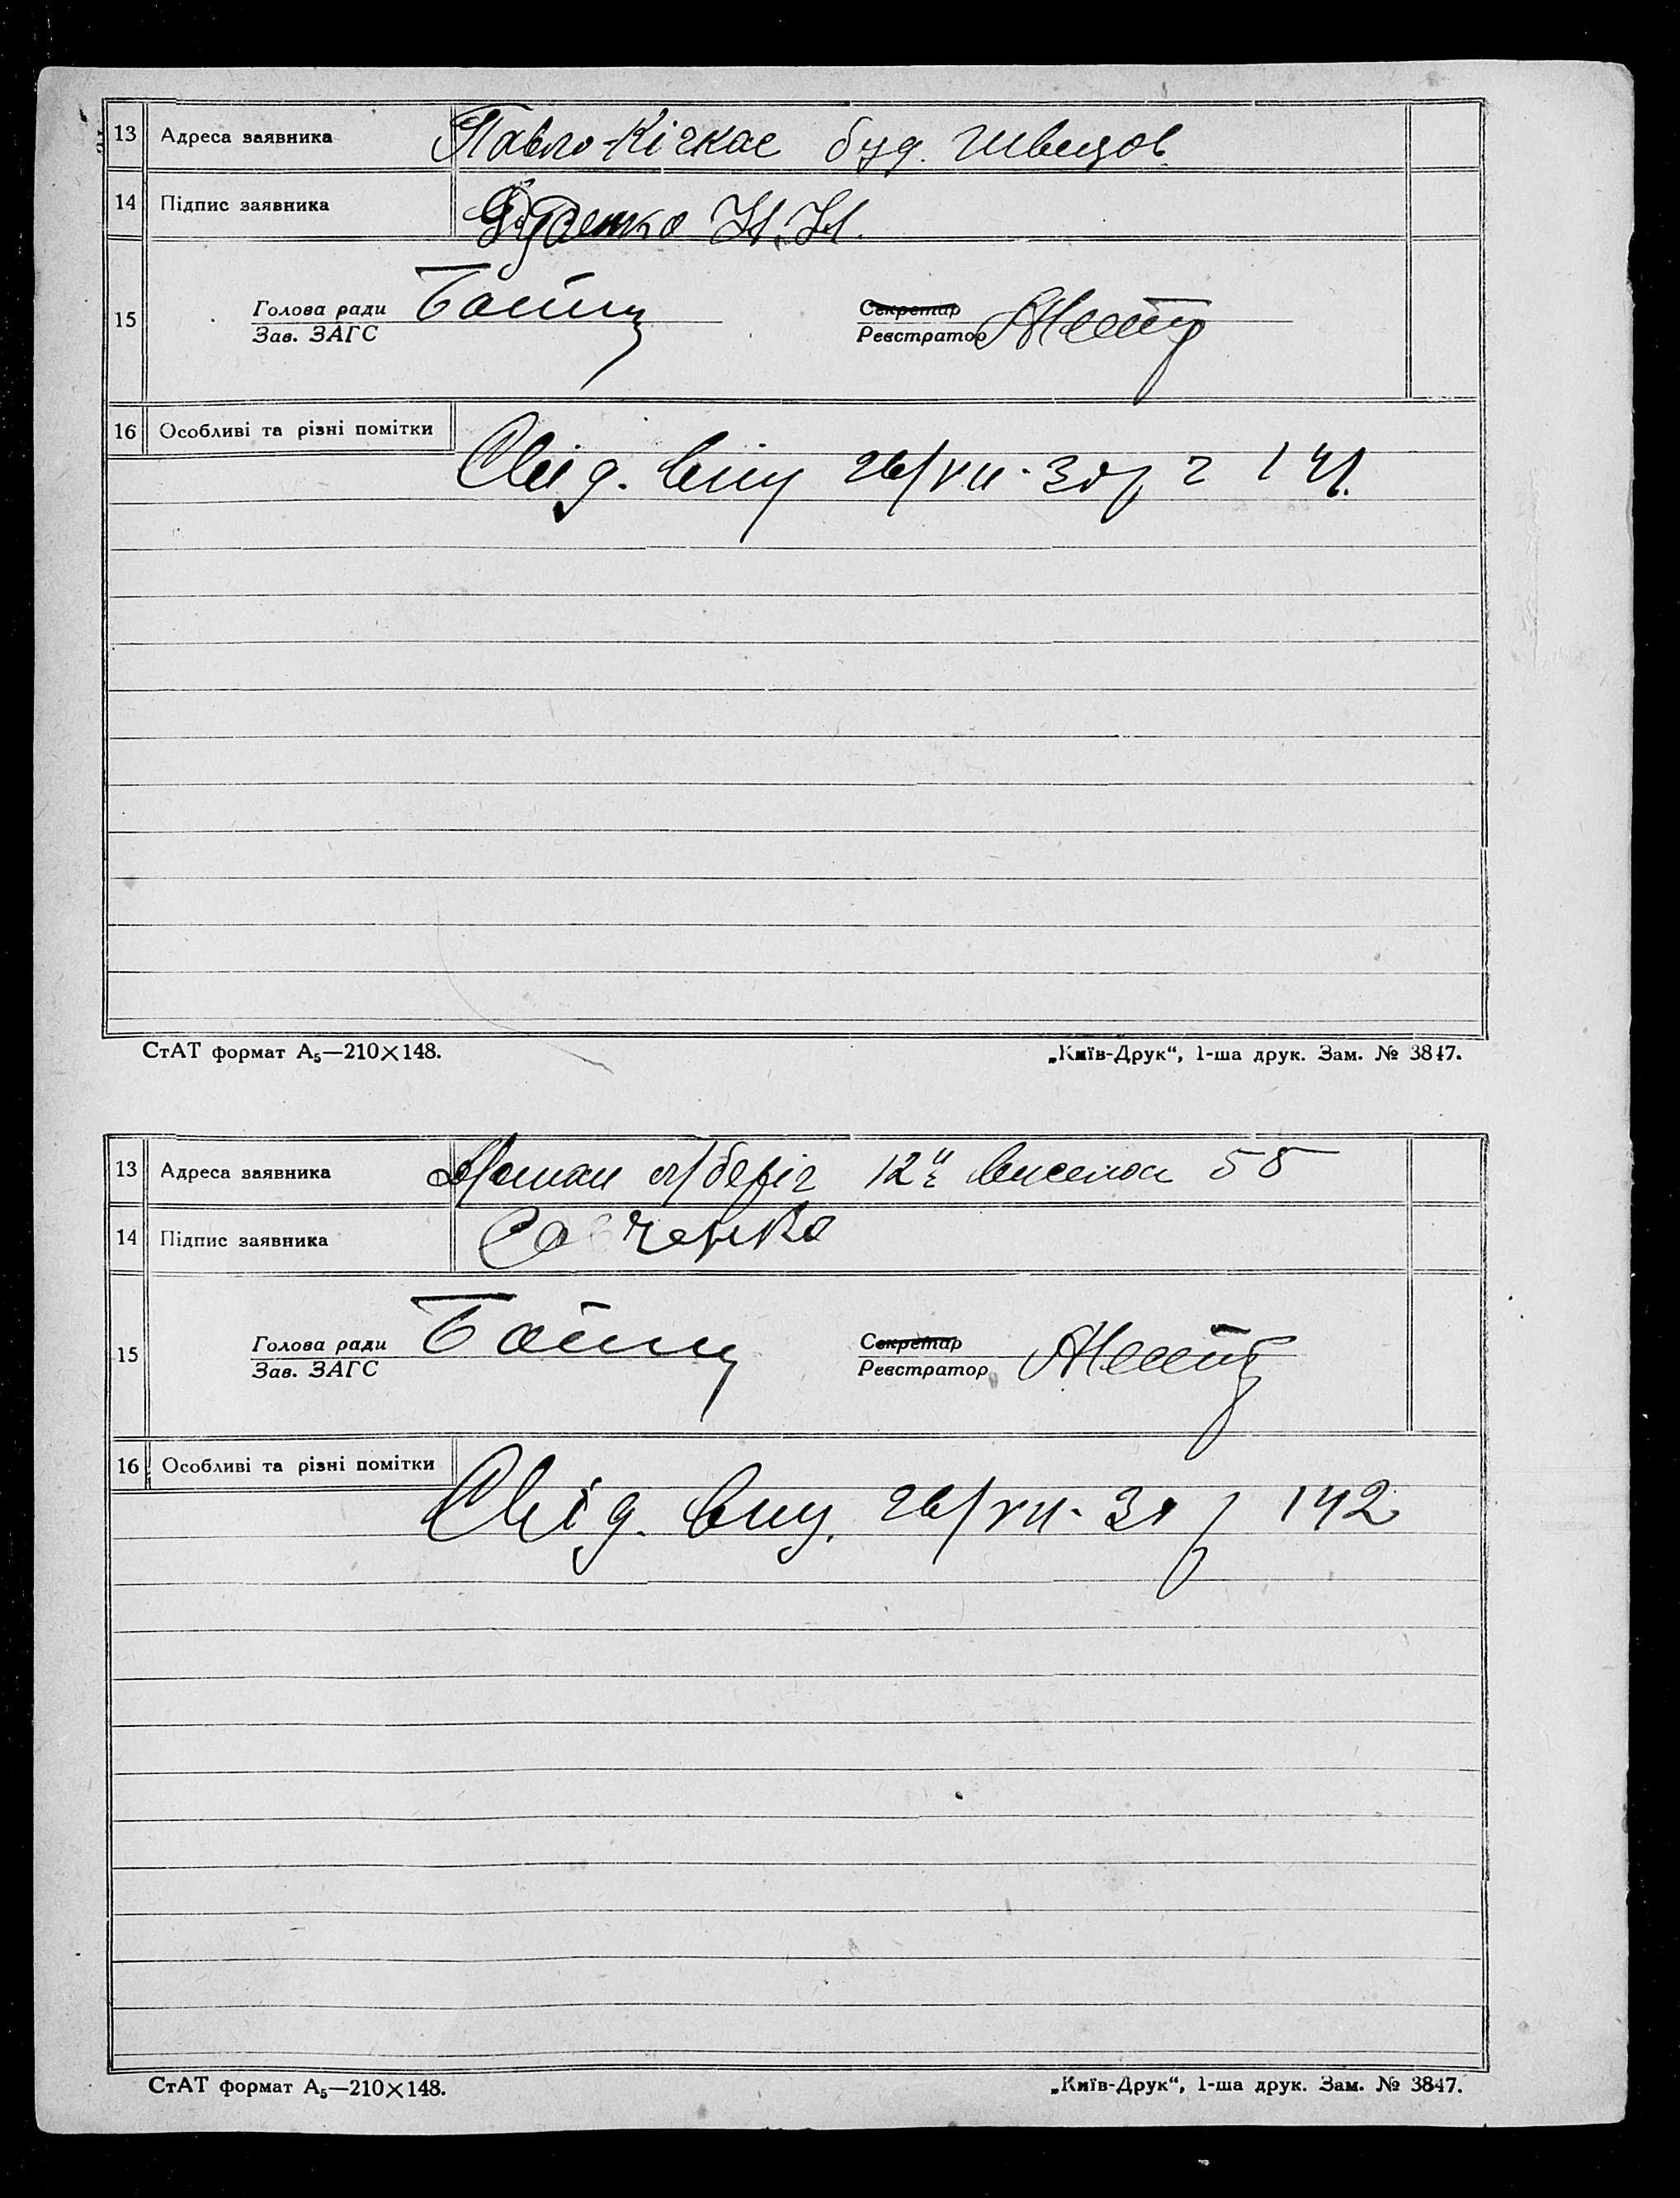 13 Адреса заявника Павло-Кічкас буд. Швецов
14 Підпис заявника
15 Голова ради Секретар
Зав. ЗАГС Реєстратор
16 Особливі та різні помітки
Свід. вид 26/VII-30р 141
СтАТ формат А5—210×148. „Київ-Друк“, 1-ша друк. Зам. № 3847.
13 Адреса заявника беріг 12 виселок 55
14 Підпис заявника Савченко
15 Голова ради Секретар
Зав. ЗАГС Реєстратор
16 Особливі та різні помітки
Свід. вид. 26/VII-30р 142
СтАТ формат А5—210×148. „Київ-Друк“, 1-ша друк. Зам. № 3847.